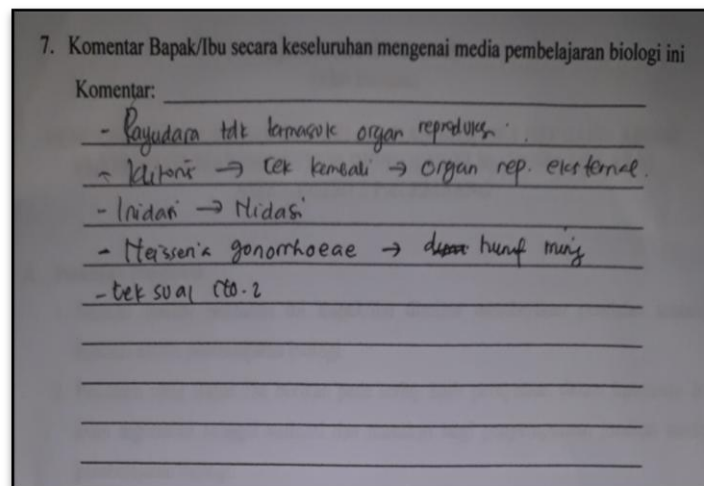 7. Komentar Bapak/Ibu secara keseluruhan mengenai media pembelajaran biologi ini
Komentar:
- Payudara tdk termasuk organ reproduksi.
- klitoris → cek kembali → organ rep. eksternal.
- Inidasi → Nidasi
- Neisseria gonorrhoeae → huruf miring
- cek soal no. 2